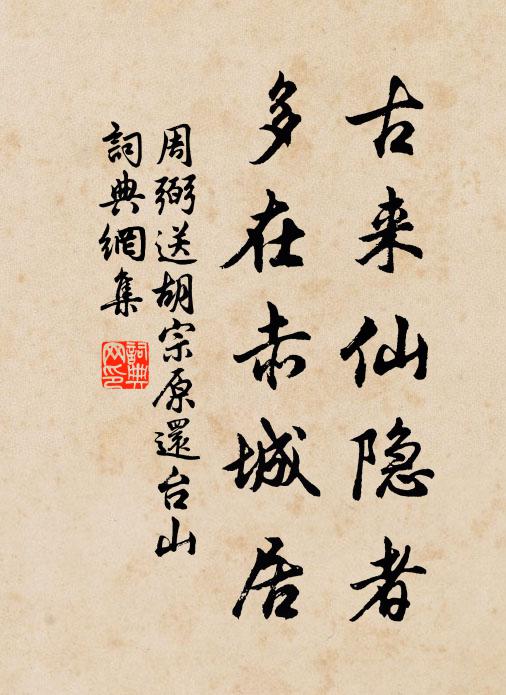 古来仙隐者
多在赤城居
周弼送胡宗原還台山
詞典網集
詞典网印